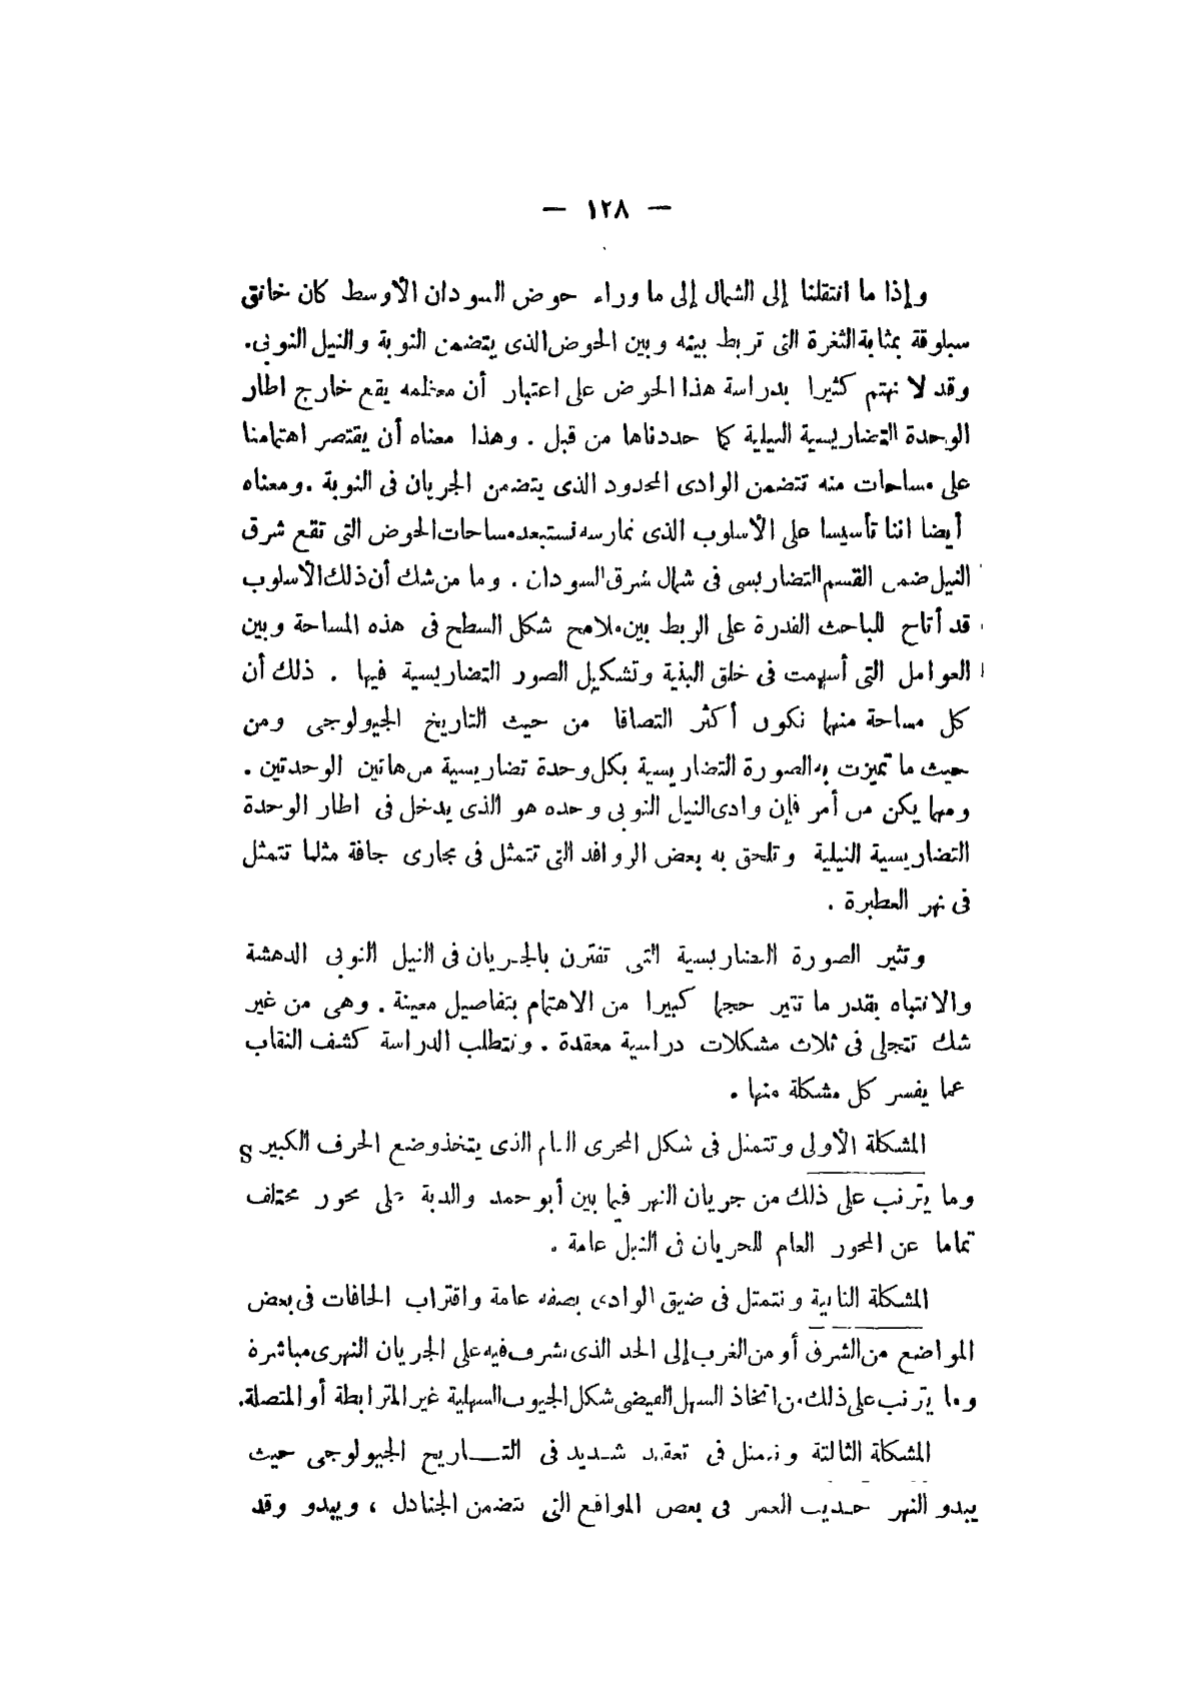 — ١٢٨ —
وإذا ما انتقلنا إلى الشمال إلى ما وراء حوض السودان الأوسط كان خانق
سبلوقة بمثابة الثغرة التى تربط بينه وبين الحوض الذى يتضمن النوبة والنيل النوبى.
وقد لا نهتم كثيرا بدراسة هذا الحوض على اعتبار أن معظمه يقع خارج اطار
الوحدة التضاريسية النيلية كما حددناها من قبل . وهذا معناه أن يقتصر اهتمامنا
على مساحات منه تتضمن الوادى المحدود الذى يتضمن الجريان فى النوبة . ومعناه
أيضا اننا تأسيسا على الأسلوب الذى نمارسه نستبعد مساحات الحوض التى تقع شرق
النيل ضمن القسم التضاريسى فى شمال شرق السودان . وما من شك أن ذلك الأسلوب
قد أتاح للباحث القدرة على الربط بين ملامح شكل السطح فى هذه المساحة وبين
العوامل التى أسهمت فى خلق البنية وتشكيل الصور التضاريسية فيها . ذلك أن
كل مساحة منها تكون أكثر التصاقا من حيث التاريخ الجيولوجى ومن
حيث ما تميزت به الصورة التضاريسية بكل وحدة تضاريسية من هاتين الوحدتين .
ومهما يكن من أمر فإن وادى النيل النوبى وحده هو الذى يدخل فى اطار الوحدة
التضاريسية النيلية وتلحق به بعض الروافد التى تتمثل فى مجارى جافة مثلما تتمثل
فى نهر العطبرة .
وتثير الصورة التضاريسية التى تقترن بالجريان فى النيل النوبى الدهشة
والانتباه بقدر ما تثير حجما كبيرا من الاهتمام بتفاصيل معينة . وهى من غير
شك تتجلى فى ثلاث مشكلات دراسية معقدة . وتتطلب الدراسة كشف النقاب
عما يفسر كل مشكلة منها .
المشكلة الأولى وتتمثل فى شكل المجرى العام الذى يتخذ وضع الحرف الكبير S
وما يترتب على ذلك من جريان النهر فيما بين أبو حمد والدبة على محور مختلف
تماما عن المحور العام للجريان فى النيل عامة .
المشكلة الثانية وتتمثل فى ضيق الوادى بصفة عامة واقتراب الحافات فى بعض
المواضع من الشرق أو من الغرب إلى الحد الذى تشرف فيه على الجريان النهرى مباشرة
وما يترتب على ذلك من اتخاذ السهل الفيضى شكل الجيوب السهلية غير المترابطة أو المتصلة.
المشكلة الثالثة وتتمثل فى تعقيد شديد فى التاريخ الجيولوجى حيث
يبدو النهر حديث العمر فى بعض المواقع التى تتضمن الجنادل ، ويبدو وقد